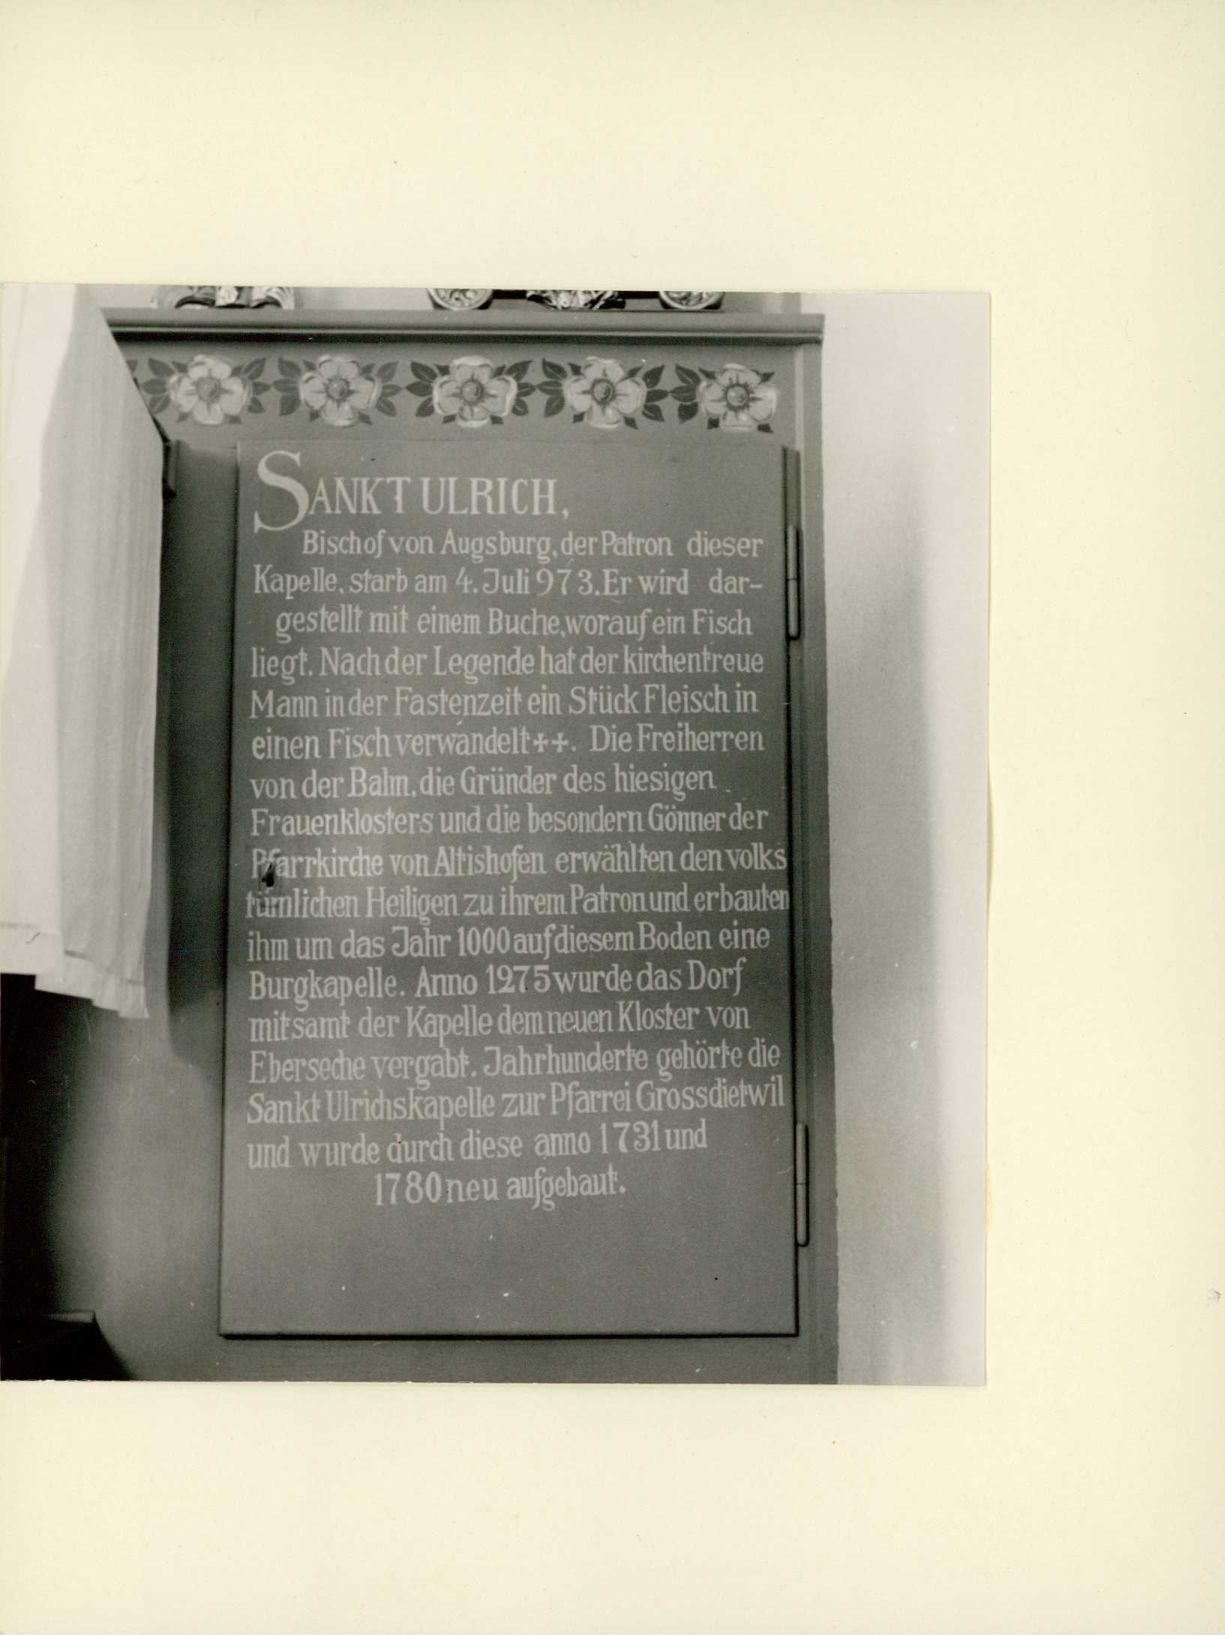 SANKT ULRICH,
Bischof von Augsburg, der Patron dieser
Kapelle, starb am 4. Juli 973. Er wird dar-
gestellt mit einem Buche, worauf ein Fisch
liegt. Nach der Legende hat der kirchentreue
Mann in der Fastenzeit ein Stück Fleisch in
einen Fisch verwandelt++. Die Freiherren
von der Balm, die Gründer des hiesigen
Frauenklosters und die besondern Gönner der
Pfarrkirche von Altishofen erwählten den volks
tümlichen Heiligen zu ihrem Patron und erbauten
ihm um das Jahr 1000 auf diesem Boden eine
Burgkapelle. Anno 1275 wurde das Dorf
mitsamt der Kapelle dem neuen Kloster von
Eberseche vergabt. Jahrhunderte gehörte die
Sankt Ulrichskapelle zur Pfarrei Grossdietwil
und wurde durch diese anno 1731 und
1780 neu aufgebaut.